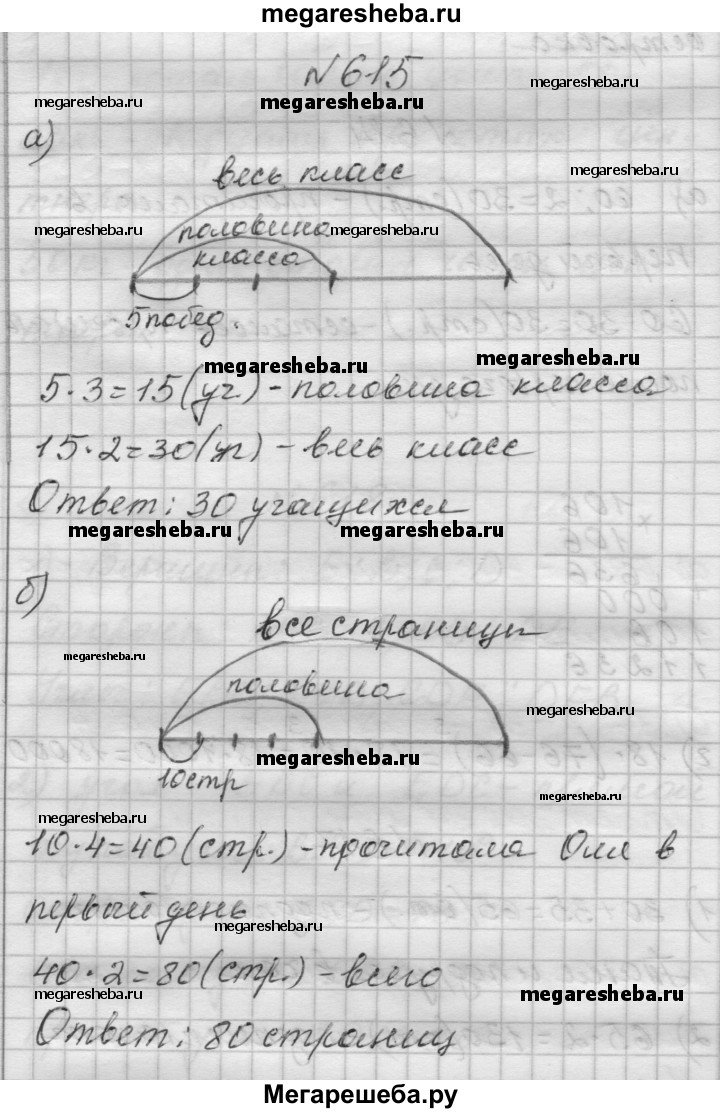 megaresheba.ru
№615
megaresheba.ru megaresheba.ru megaresheba.ru
а)
весь класс
megaresheba.ru
половина
megaresheba.ru megaresheba.ru
класса
5 побед.
megaresheba.ru megaresheba.ru
5·3=15(уч.) - половина класса
15·2=30(уч) - весь класс
Ответ: 30 учащихся
megaresheba.ru megaresheba.ru
б)
все страницы
megaresheba.ru
половина
megaresheba.ru
megaresheba.ru
10стр
megaresheba.ru
megaresheba.ru
10·4=40(стр.) - прочитала Оля в
первый день
megaresheba.ru
40·2=80(стр.) - всего
megaresheba.ru megaresheba.ru
Ответ: 80 страниц
Мегарешеба.ру